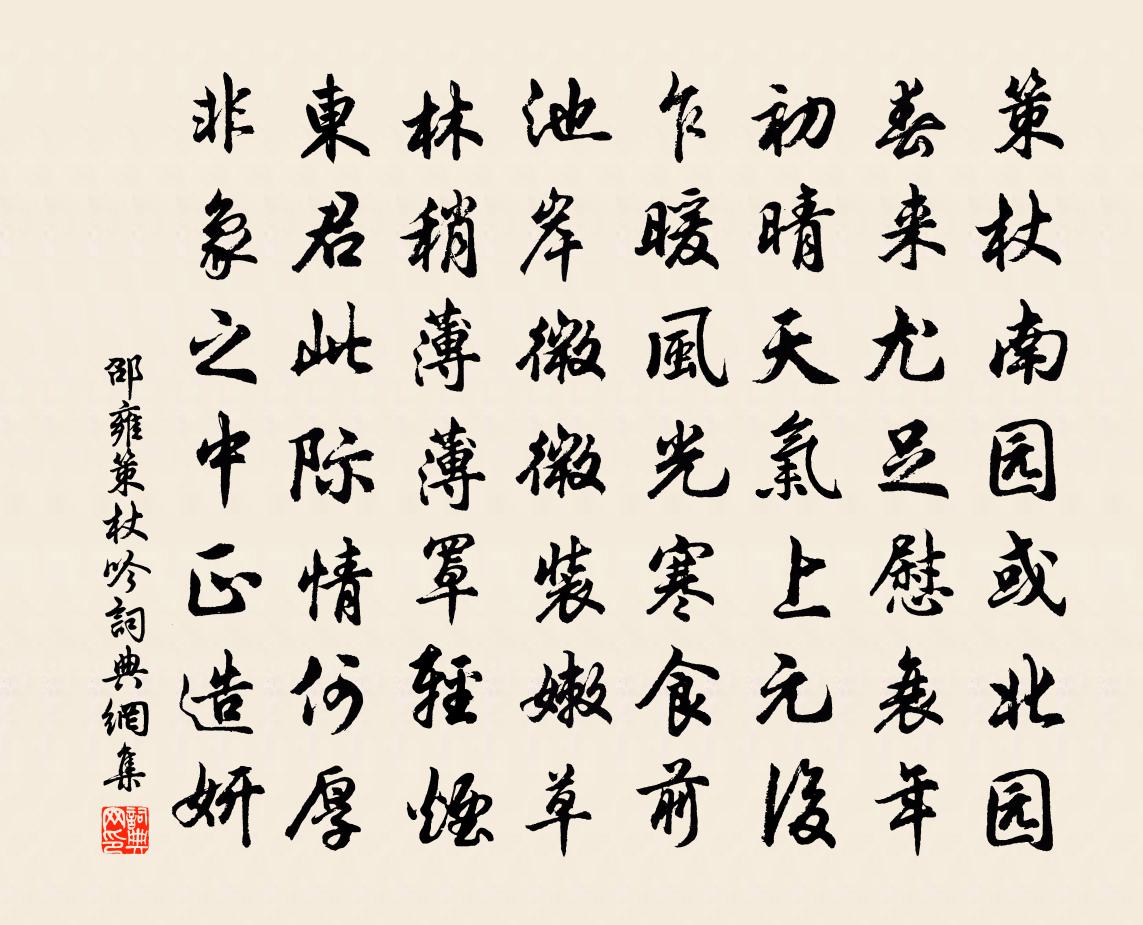 策杖南园或北园
春来尤足慰衰年
初晴天氣上元後
乍暖風光寒食前
池岸微微裝嫩草
林稍薄薄罩輕煙
東君此際情何厚
非象之中正造妍
邵雍策杖吟詞典網集
詞典网印